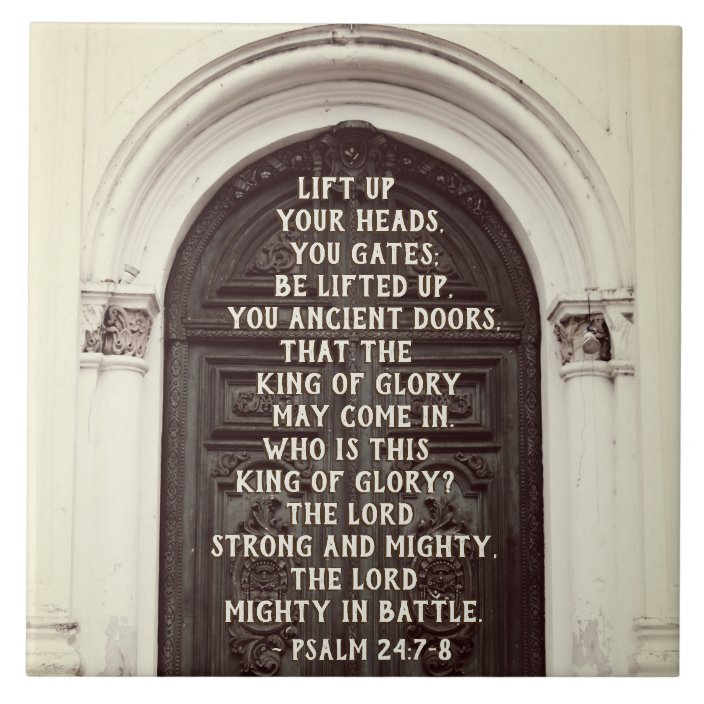 LIFT UP
YOUR HEADS,
YOU GATES;
BE LIFTED UP,
YOU ANCIENT DOORS,
THAT THE
KING OF GLORY
MAY COME IN.
WHO IS THIS
KING OF GLORY?
THE LORD
STRONG AND MIGHTY,
THE LORD
MIGHTY IN BATTLE.
~ PSALM 24:7-8